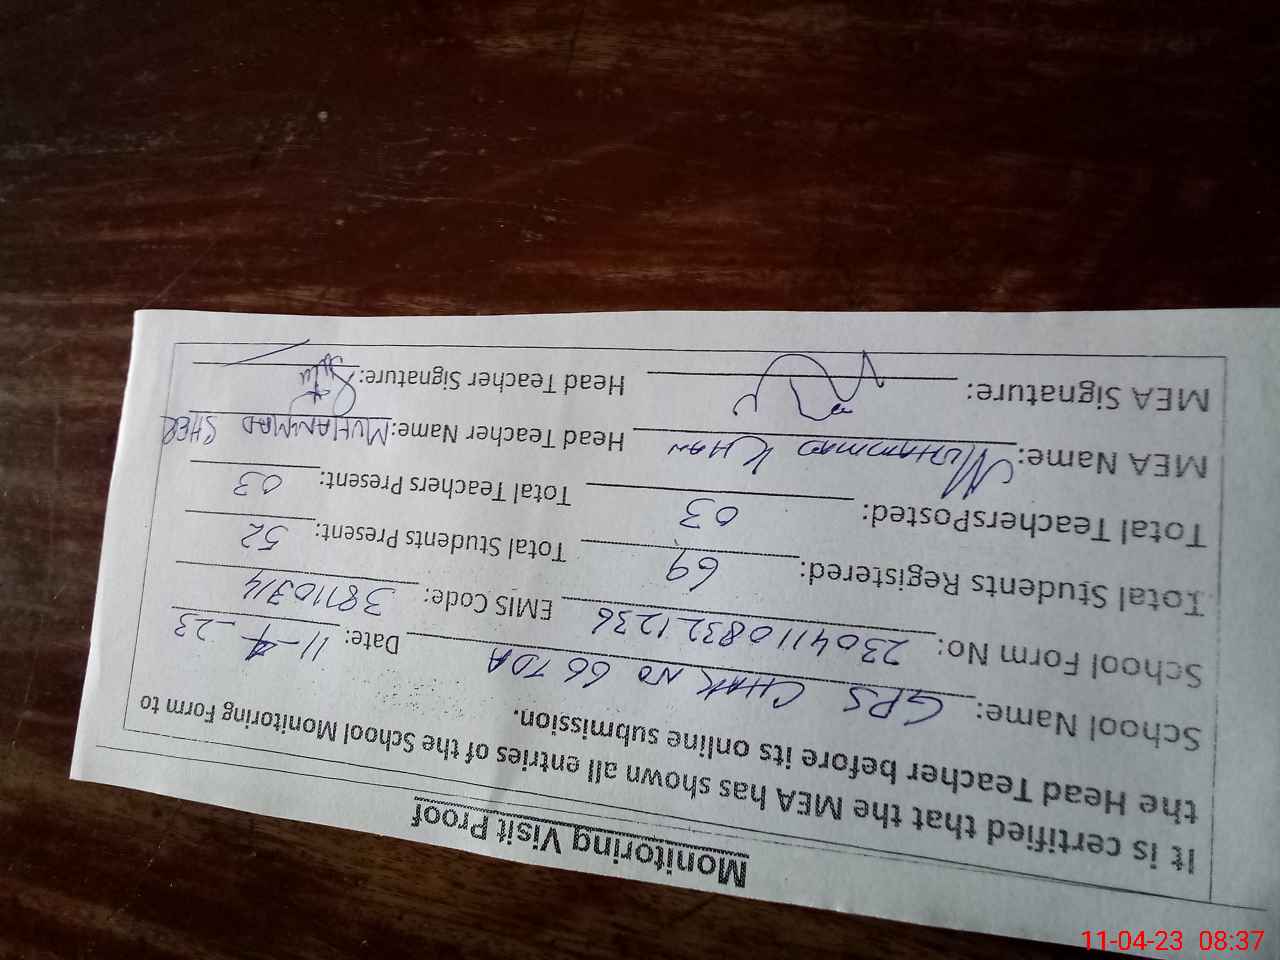 Monitoring Visit Proof
It is certified that the MEA has shown all entries of the School Monitoring Form to
the Head Teacher before its online submission.
School Name: GPS CHAK NO 66 TDA Date: 11-4-23
School Form No: 23041108321236 EMIS Code: 38110314
Total Students Registered: 69 Total Students Present: 52
Total TeachersPosted: 03 Total Teachers Present: 03
MEA Name: MUHAMMAD KHAN Head Teacher Name: MUHAMMAD SHER
MEA Signature: Head Teacher Signature:
11-04-23 08:37